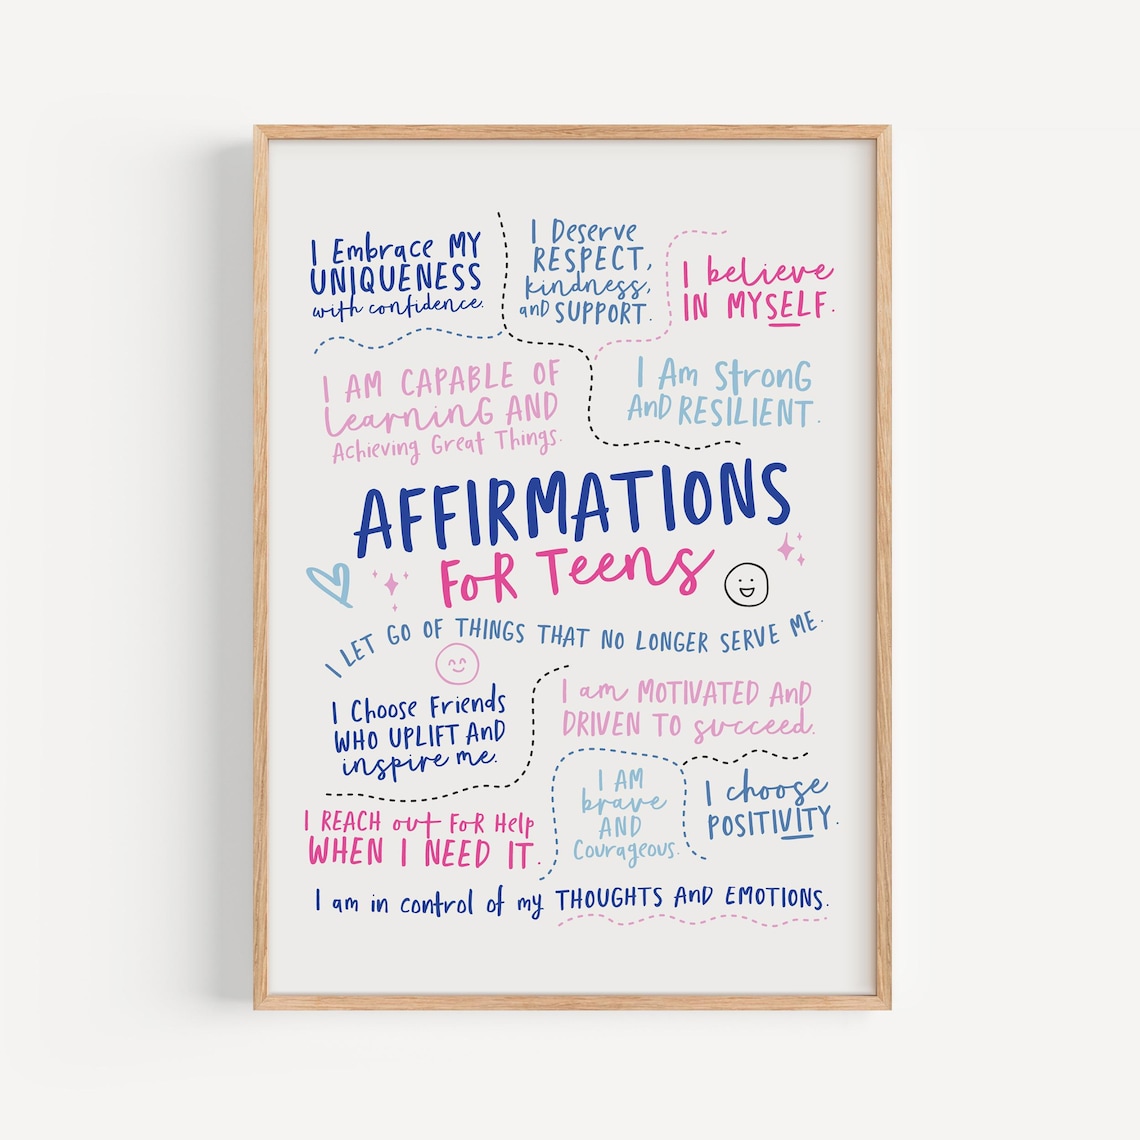 I Embrace MY
UNIQUENESS
with confidence.
I Deserve
RESPECT,
kindness,
and SUPPORT.
I believe
IN MYSELF.
I AM CAPABLE OF
Learning AND
Achieving Great Things.
I Am Strong
And RESILIENT.
AFFIRMATIONS
FOR Teens
I LET GO OF THINGS THAT NO LONGER SERVE ME.
I Choose Friends
WHO UPLIFT And
inspire me.
I am MOTIVATED And
DRIVEN TO succeed.
I REACH out FOR Help
WHEN I NEED IT.
I AM
brave
AND
Courageous.
I choose
POSITIVITY.
I am in control of my THOUGHTS AND EMOTIONS.